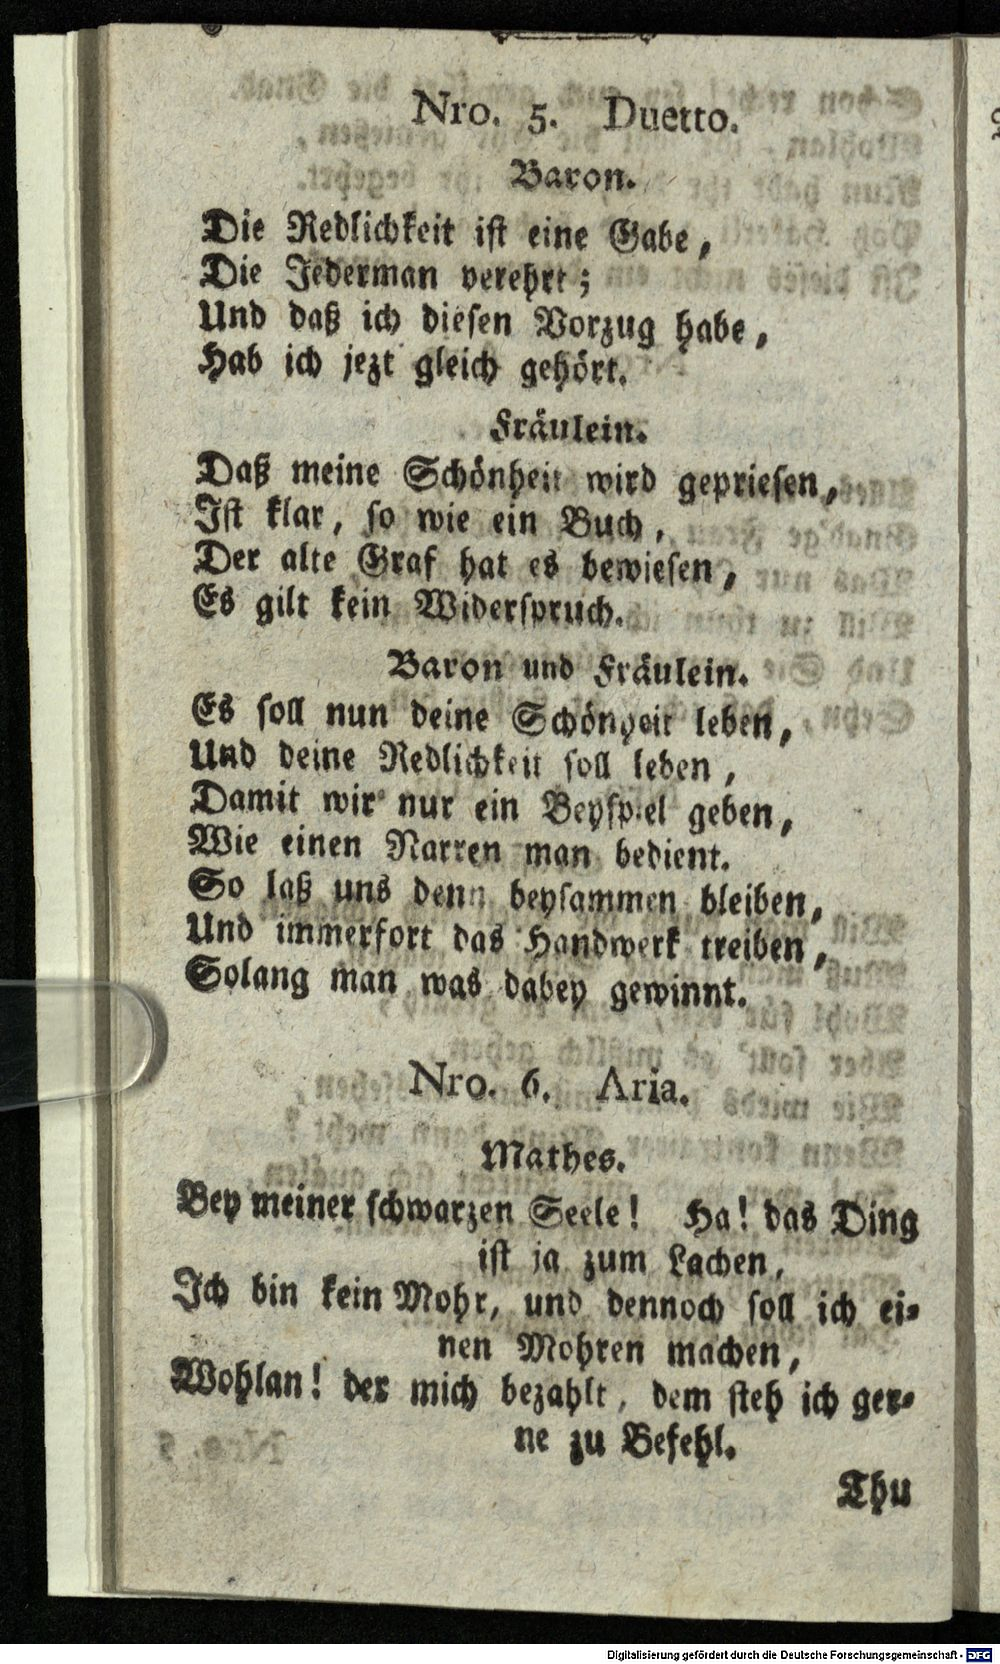 Nro. 5. Duetto.
Baron.
Die Redlichkeit ist eine Gabe,
Die Jederman verehrt;
Und daß ich diesen Vorzug habe,
Hab ich jezt gleich gehört.
Fräulein.
Daß meine Schönheit wird gepriesen,
Ist klar, so wie ein Buch,
Der alte Graf hat es bewiesen,
Es gilt kein Widerspruch.
Baron und Fräulein.
Es soll nun deine Schönheit leben,
Und deine Redlichkeit soll leben,
Damit wir nur ein Beyspiel geben,
Wie einen Narren man bedient.
So laß uns denn beysammen bleiben,
Und immerfort das Handwerk treiben,
Solang man was dabey gewinnt.
Nro. 6. Aria.
Mathes.
Bey meiner schwarzen Seele! Ha! das Ding
ist ja zum Lachen,
Ich bin kein Mohr, und dennoch soll ich ei-
nen Mohren machen,
Wohlan! der mich bezahlt, dem steh ich ger-
ne zu Befehl.
Thu
Digitalisierung gefördert durch die Deutsche Forschungsgemeinschaft - DFG